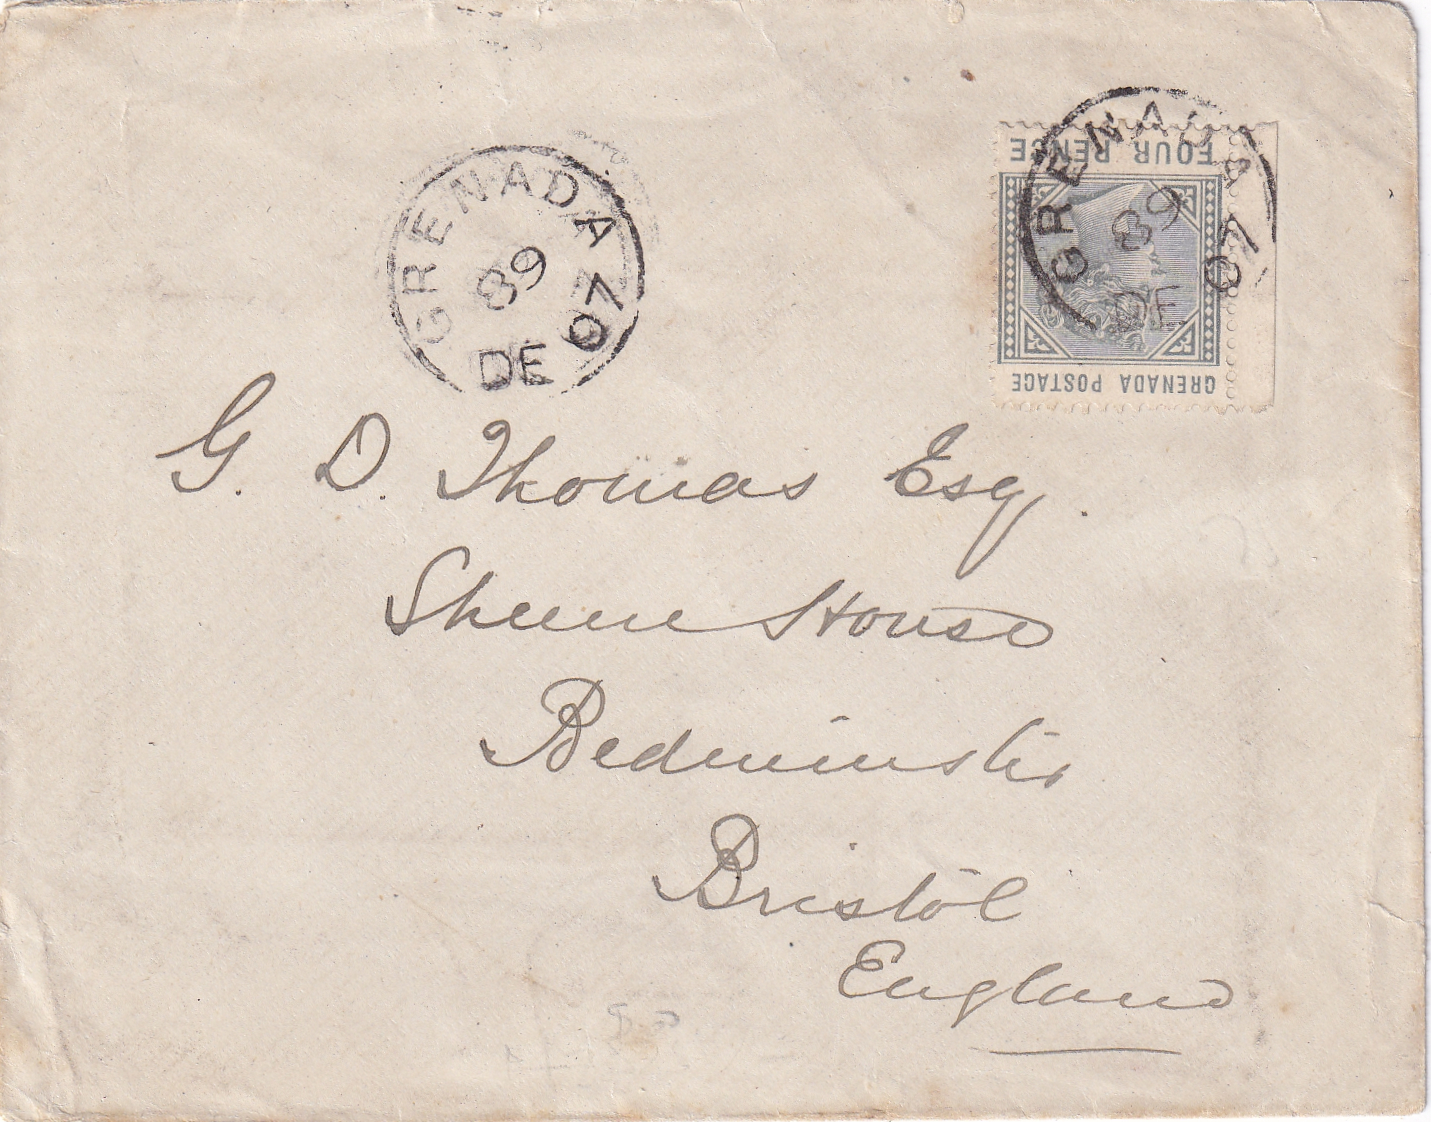 GRENADA
89
DE 07
GRENADA
89
DE 07
FOUR PENCE
GRENADA POSTAGE
G. D. Thomas Esq.
Sheene House
Bedminster
Bristol
England